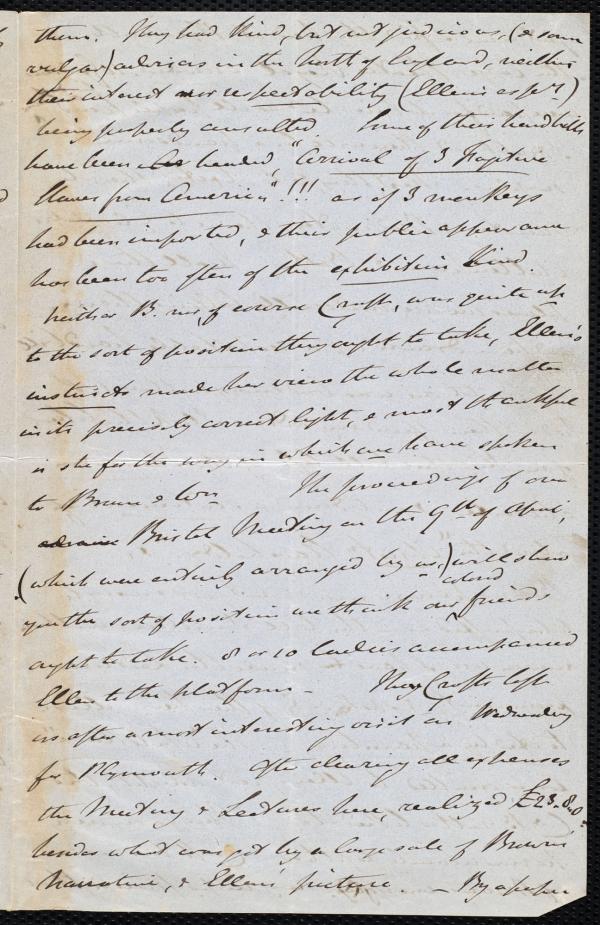 them. They had kind, but not judicious, (& some
vulgar) advisers in the North of England, neither
their interest nor respectability (Ellen's esp.ly)
being properly consulted. Some of their hand bills
have been headed, "Arrival of 3 Fugitive
Slaves from America"!!! as if 3 monkeys
had been imported, & their public appearance
has been too often of the exhibition kind.
Neither B. nor, of course Crafts, was quite up
to the sort of position they ought to take, Ellen's
instincts made her view the whole matter
in its precisely correct light, & most thankful
is she for the way in which we have spoken
to Brown & Wm The proceedings of our
Bristol Meeting on the 9th of April,
(which were entirely arranged by us,) will show
you the sort of position we think our colored friends
ought to take. 8 or 10 Ladies accompanied
Ellen to the platform - The Crafts left
us after a most interesting visit on Wednesday
for Plymouth. After clearing all expenses
the Meeting & Lectures here, realized £23.8.0
besides what was got by a large sale of Brown's
Narrative, & Ellen's picture. - By a paper